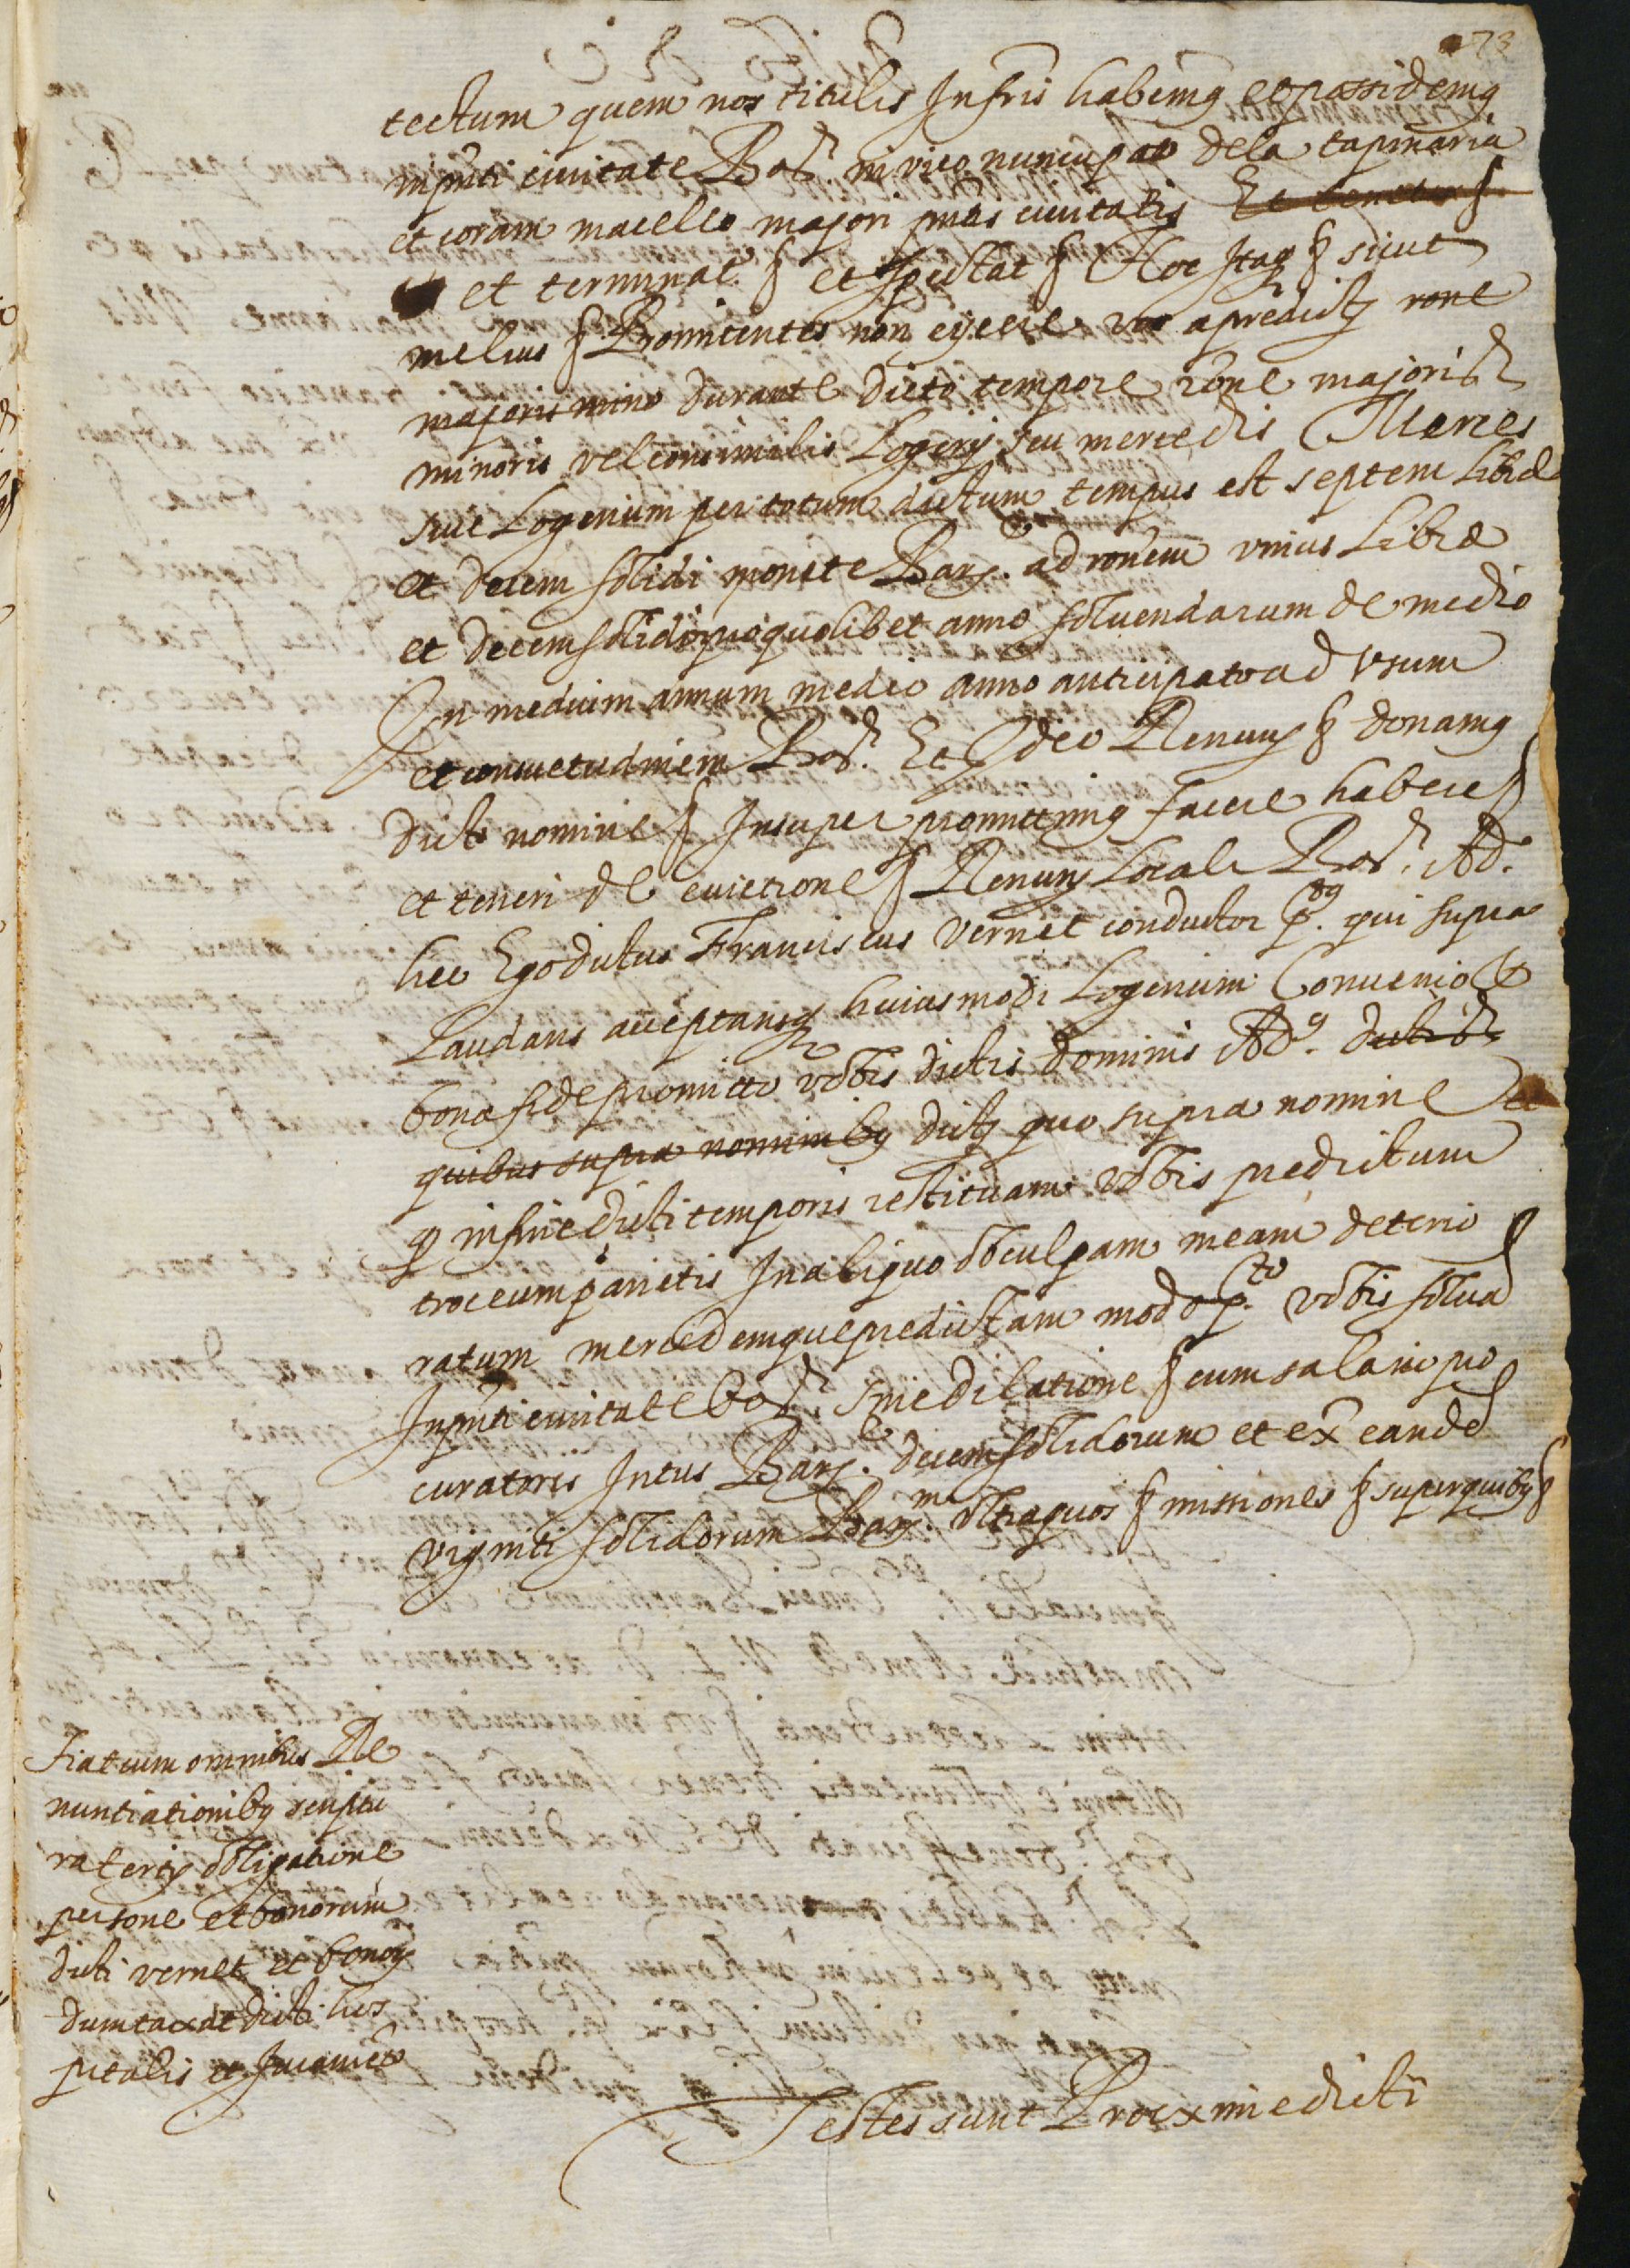 273
tectum quem nos titulis Infris habemq et possidemq
inpnti civitate Bar. in vico nuncupato dela tapinaria
et coram macello majori pntis civitatis Et tenetur §
et terminat § et spectat § Hoc Itaq § sicut
melius § Promitentes non eyicere vos apredictis rone
majoris mino durante dicto tempore rone majoris
minoris vel consimilis Logerij seu mercedis Merces
sive Logerium per totum dictum tempus est septem libræ
et decem solidi monete Barñ. ad ronem unius Libræ
et decem solidor quolibet anno solvendarum de medio
In medium annum medio anno anticipato ad usum
et consuetudinem Bar. Et Ideo Renunș § donamq
dicto nomine § Insuper promittimq facere habere §
et teneri de evictione § Renunș Locali Bar. Ad
hec Ego dictus Franciscus vernet conductor p. qui supra
Laudans acceptansq huiusmodi Logerium Convenio et
bona fide promitto vobis dictis dominis Ad. dictis
quibus supra nominibq dictis quo supra nomine
q in fine dicti temporis restituam vobis predictum
troceum parietis In aliquo ob culpam meam deterio
ratum mercedemque predictam modo p.to vobis solvā
Inpnti civitate bar. sine dilatione § cum salario pro
curatoris Intus Barñ. decem solidorum et ex̃ eandē
viginti solidorum Barñ. ultra quos § missiones § super quibq §
Fiat cum omnibus Re
nuntiationibq scriptu
ra tertij obligatione
persone et bonorum
dicti vernet et bonorȝ
dumtaxat dicti hos
pitalis et Juramēto
Testes sunt Proxime dicti